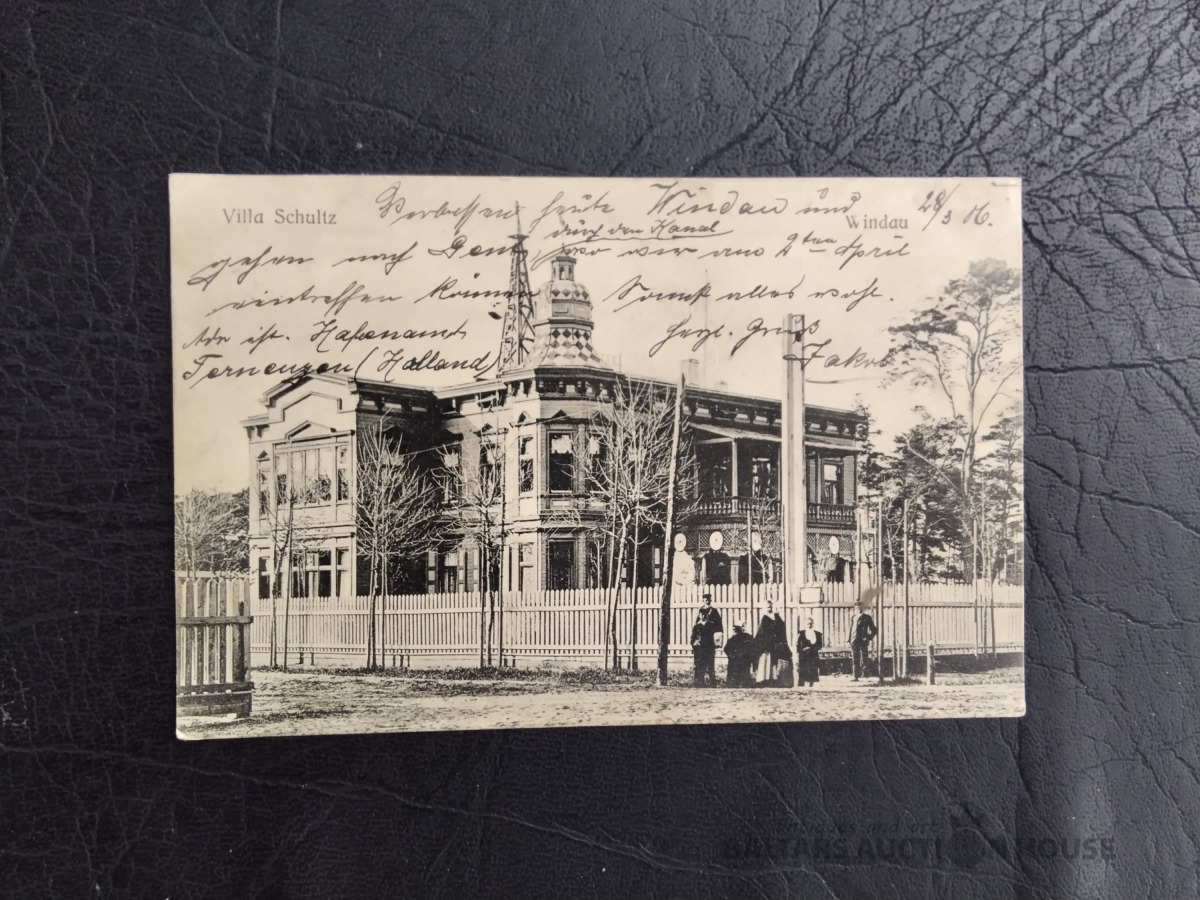 Villa Schultz
Windau
28/3 06.
Verlassen heute Windau und
durch den Kanal
gehen nach Gent, wo wir am 2ten April
eintreffen können. Sonst alles wohl.
Adr ist. Hafenamt
Herzl. Gruß
Terneuzen (Holland)
Jakob
BALTARS AUCTION HOUSE